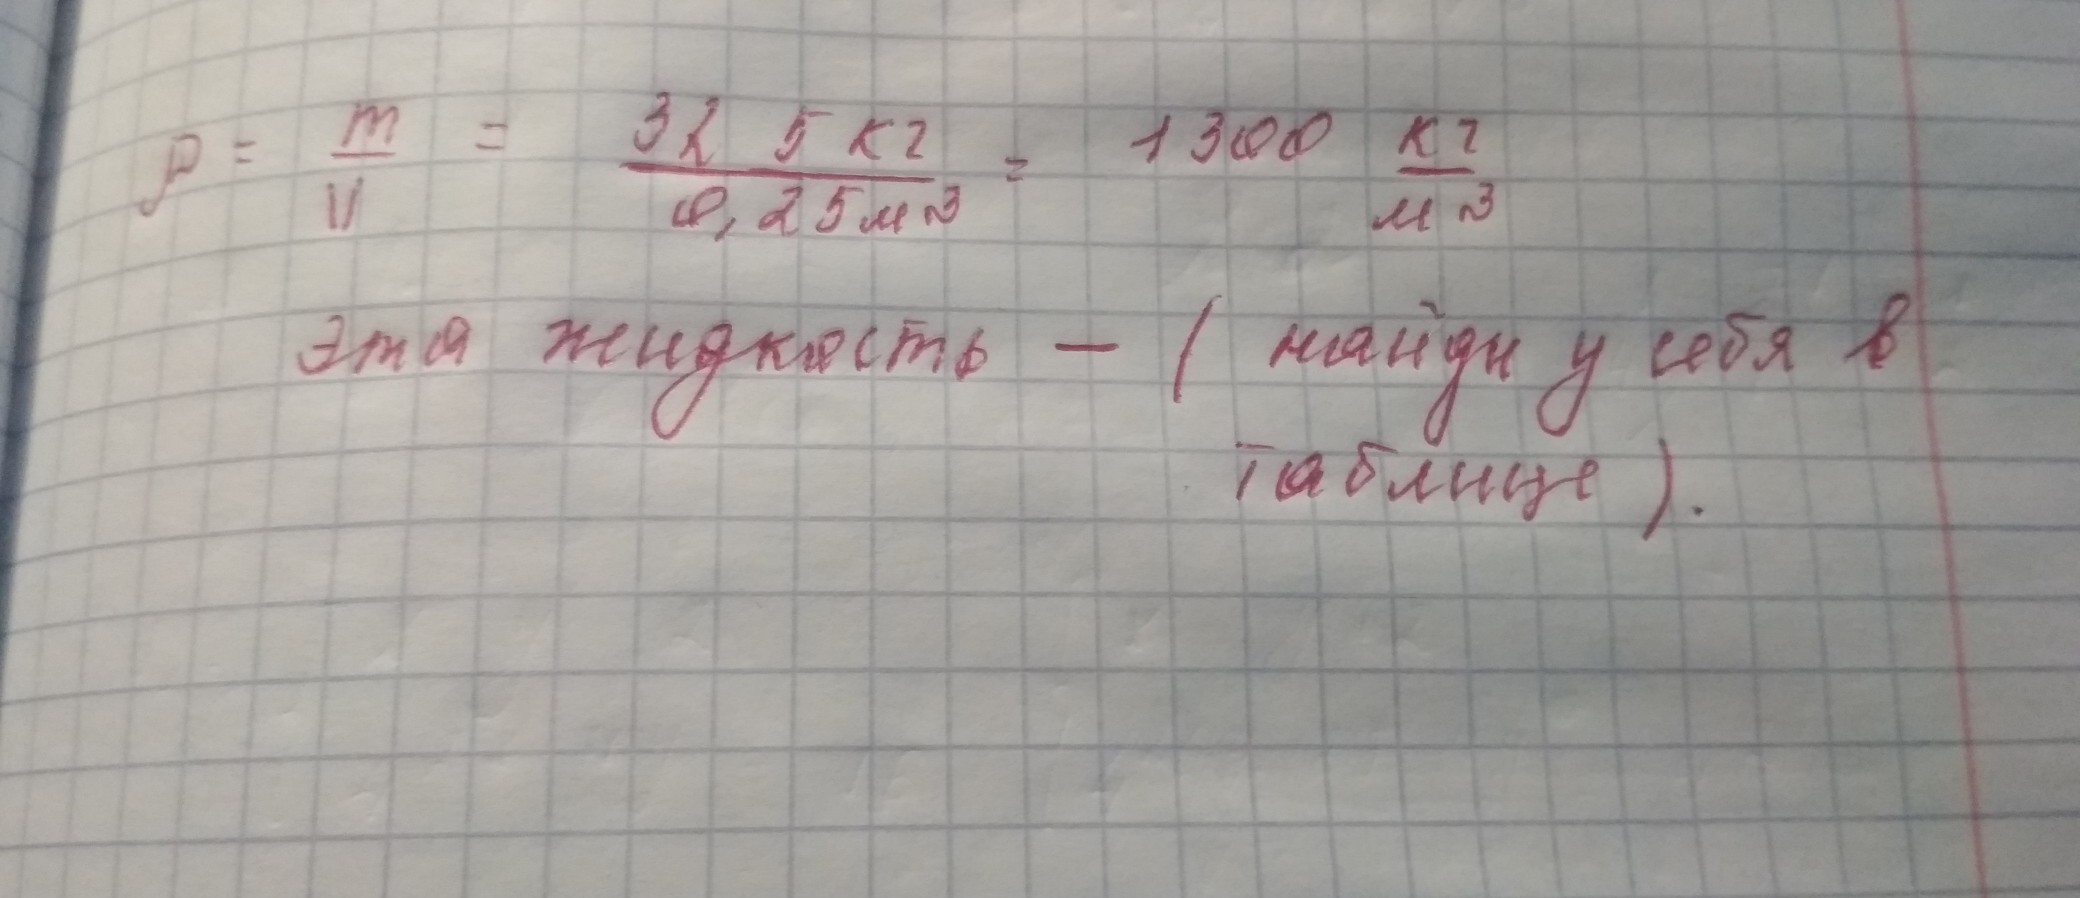 ρ = m/V = 325 кг/0,25 м³ = 1300 кг/м³
Эта жидкость – ( найди у себя в
таблице ).